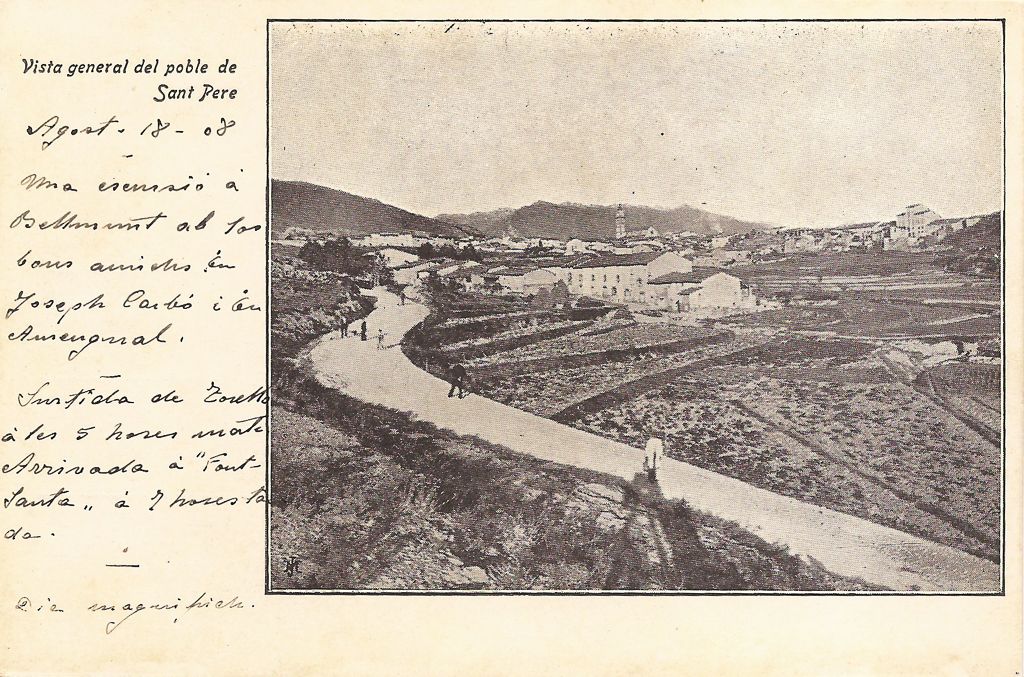 Vista general del poble de
Sant Pere
Agost - 18 - 08
Una escursió á
Bellmunt ab los
bons amichs En
Joseph Carbó i En
Amengual.
Surtida de Torelló
á les 5 hores matí
Arrivada á "Font-
Santa" á 7 hores ta
da.
Dia magnifich.